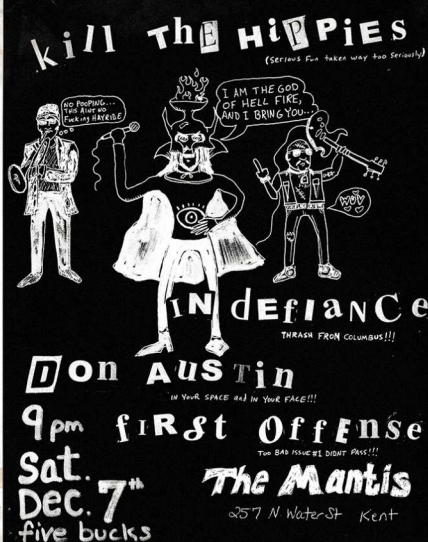 kill THE HiPPiES
(SERiOUS FUN taken way too SERiOUSly)
NO POOPING...
THIS AINT NO
FUCKING HAYRIDE
I AM THE GOD
OF HELL FIRE,
AND I BRING YOU...
WOV
IN dEfIANCE
THRASH FROM COLUMBUS!!!
DON AUSTin
IN YOUR SPACE and IN YOUR FACE!!!
9 pm
fIRSt OffENsE
TOO BAD ISSUE #1 DIDNT PASS!!!
Sat.
Dec. 7th
The Mantis
257 N Water St Kent
five bucks